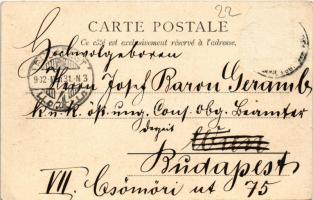 22
CARTE POSTALE
Ce côté est exclusivement réservé à l'adresse.
Hochwolgeboren
Herrn Josef Baron Geramb
k. u. k. öst. ung. Cons. Obg. Beamter
derzeit
Wien
Budapest
VII. Csömöri ut 75